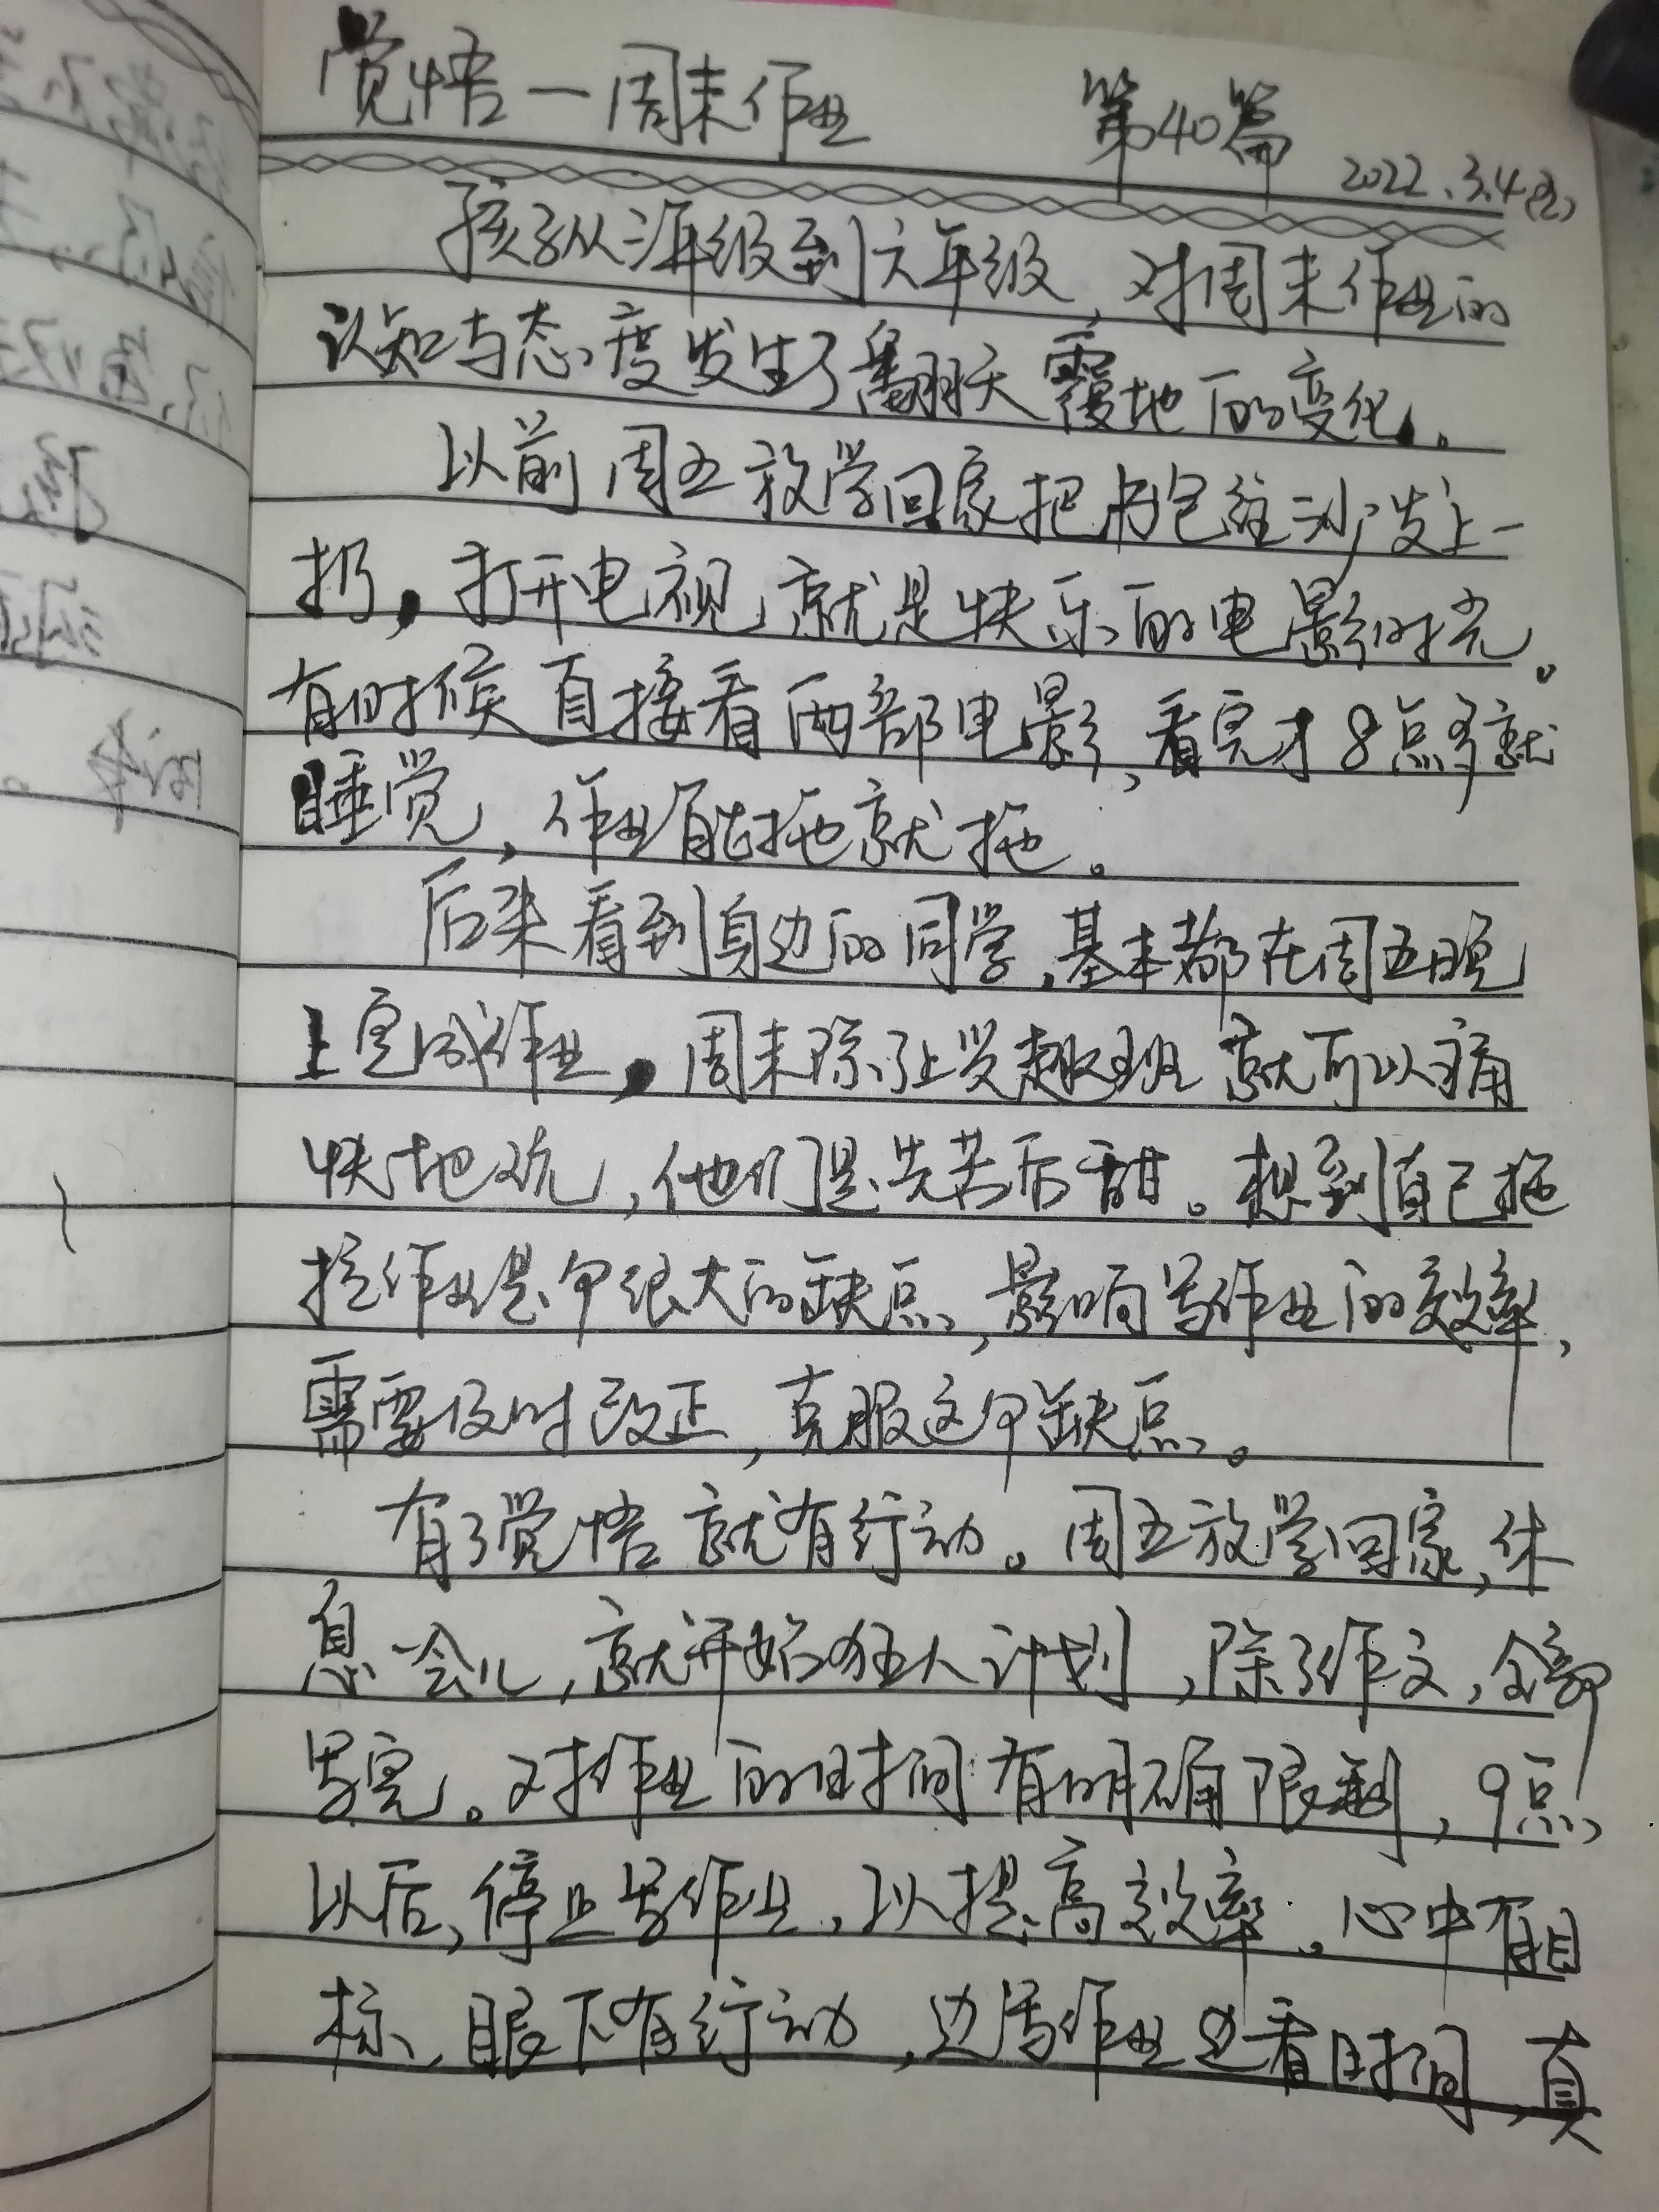 觉悟一周末作业 第40篇
2022.3.4(五)
孩子从三年级到六年级,对周末作业的
认知与态度发生了翻天覆地的变化。
以前周五放学回家把书包往沙发上一
扔,打开电视,就是快乐的电影时光。
有时候直接看两部电影,看完才8点多就
睡觉,作业能拖就拖。
后来看到身边的同学,基本都在周五晚
上完成作业,周末除了上兴趣班就可以痛
快地玩,他们是先苦后甜。想到自己拖
拉作业是个很大的缺点,影响写作业的效率,
需要及时改正,克服这个缺点。
有了觉悟就有行动。周五放学回家,休
息一会儿,就开始狂人计划,除了作文,全部
写完。对作业的时间有明确限制,9点
以后,停止写作业,以提高效率。心中有目
标,眼下有行动,边写作业边看时间,真